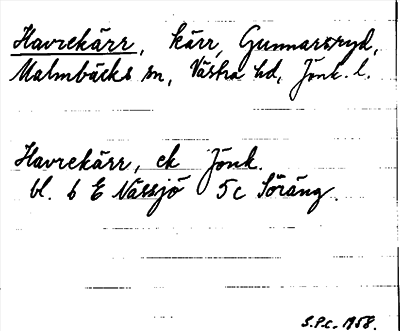 Havrekärr, kärr, Gunnarsryd,
Malmbäcks sn, Västra hd, Jönk. l.
Havrekärr, ek Jönk.
bl. 6 E Nässjö 5c Söräng.
S.P.c. 1958.